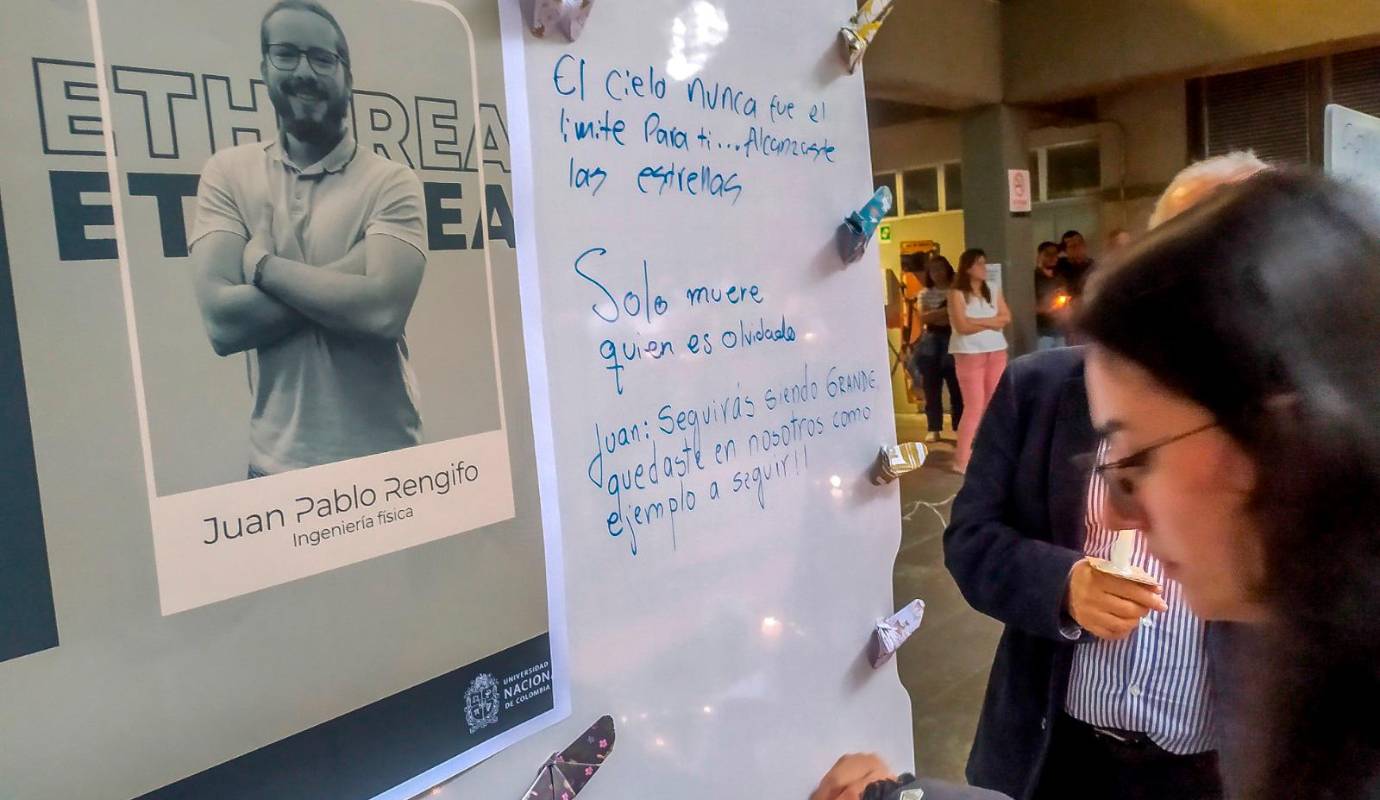 ETH REA
ET EA
Juan Pablo Rengifo
Ingeniería física
UNIVERSIDAD
NACION
DE COLOMBIA
El cielo nunca fue el
limite Para ti... Alcanzaste
las estrellas
Solo muere
quien es olvidado
Juan: Seguirás siendo GRANDE,
quedaste en nosotros como
ejemplo a seguir!!